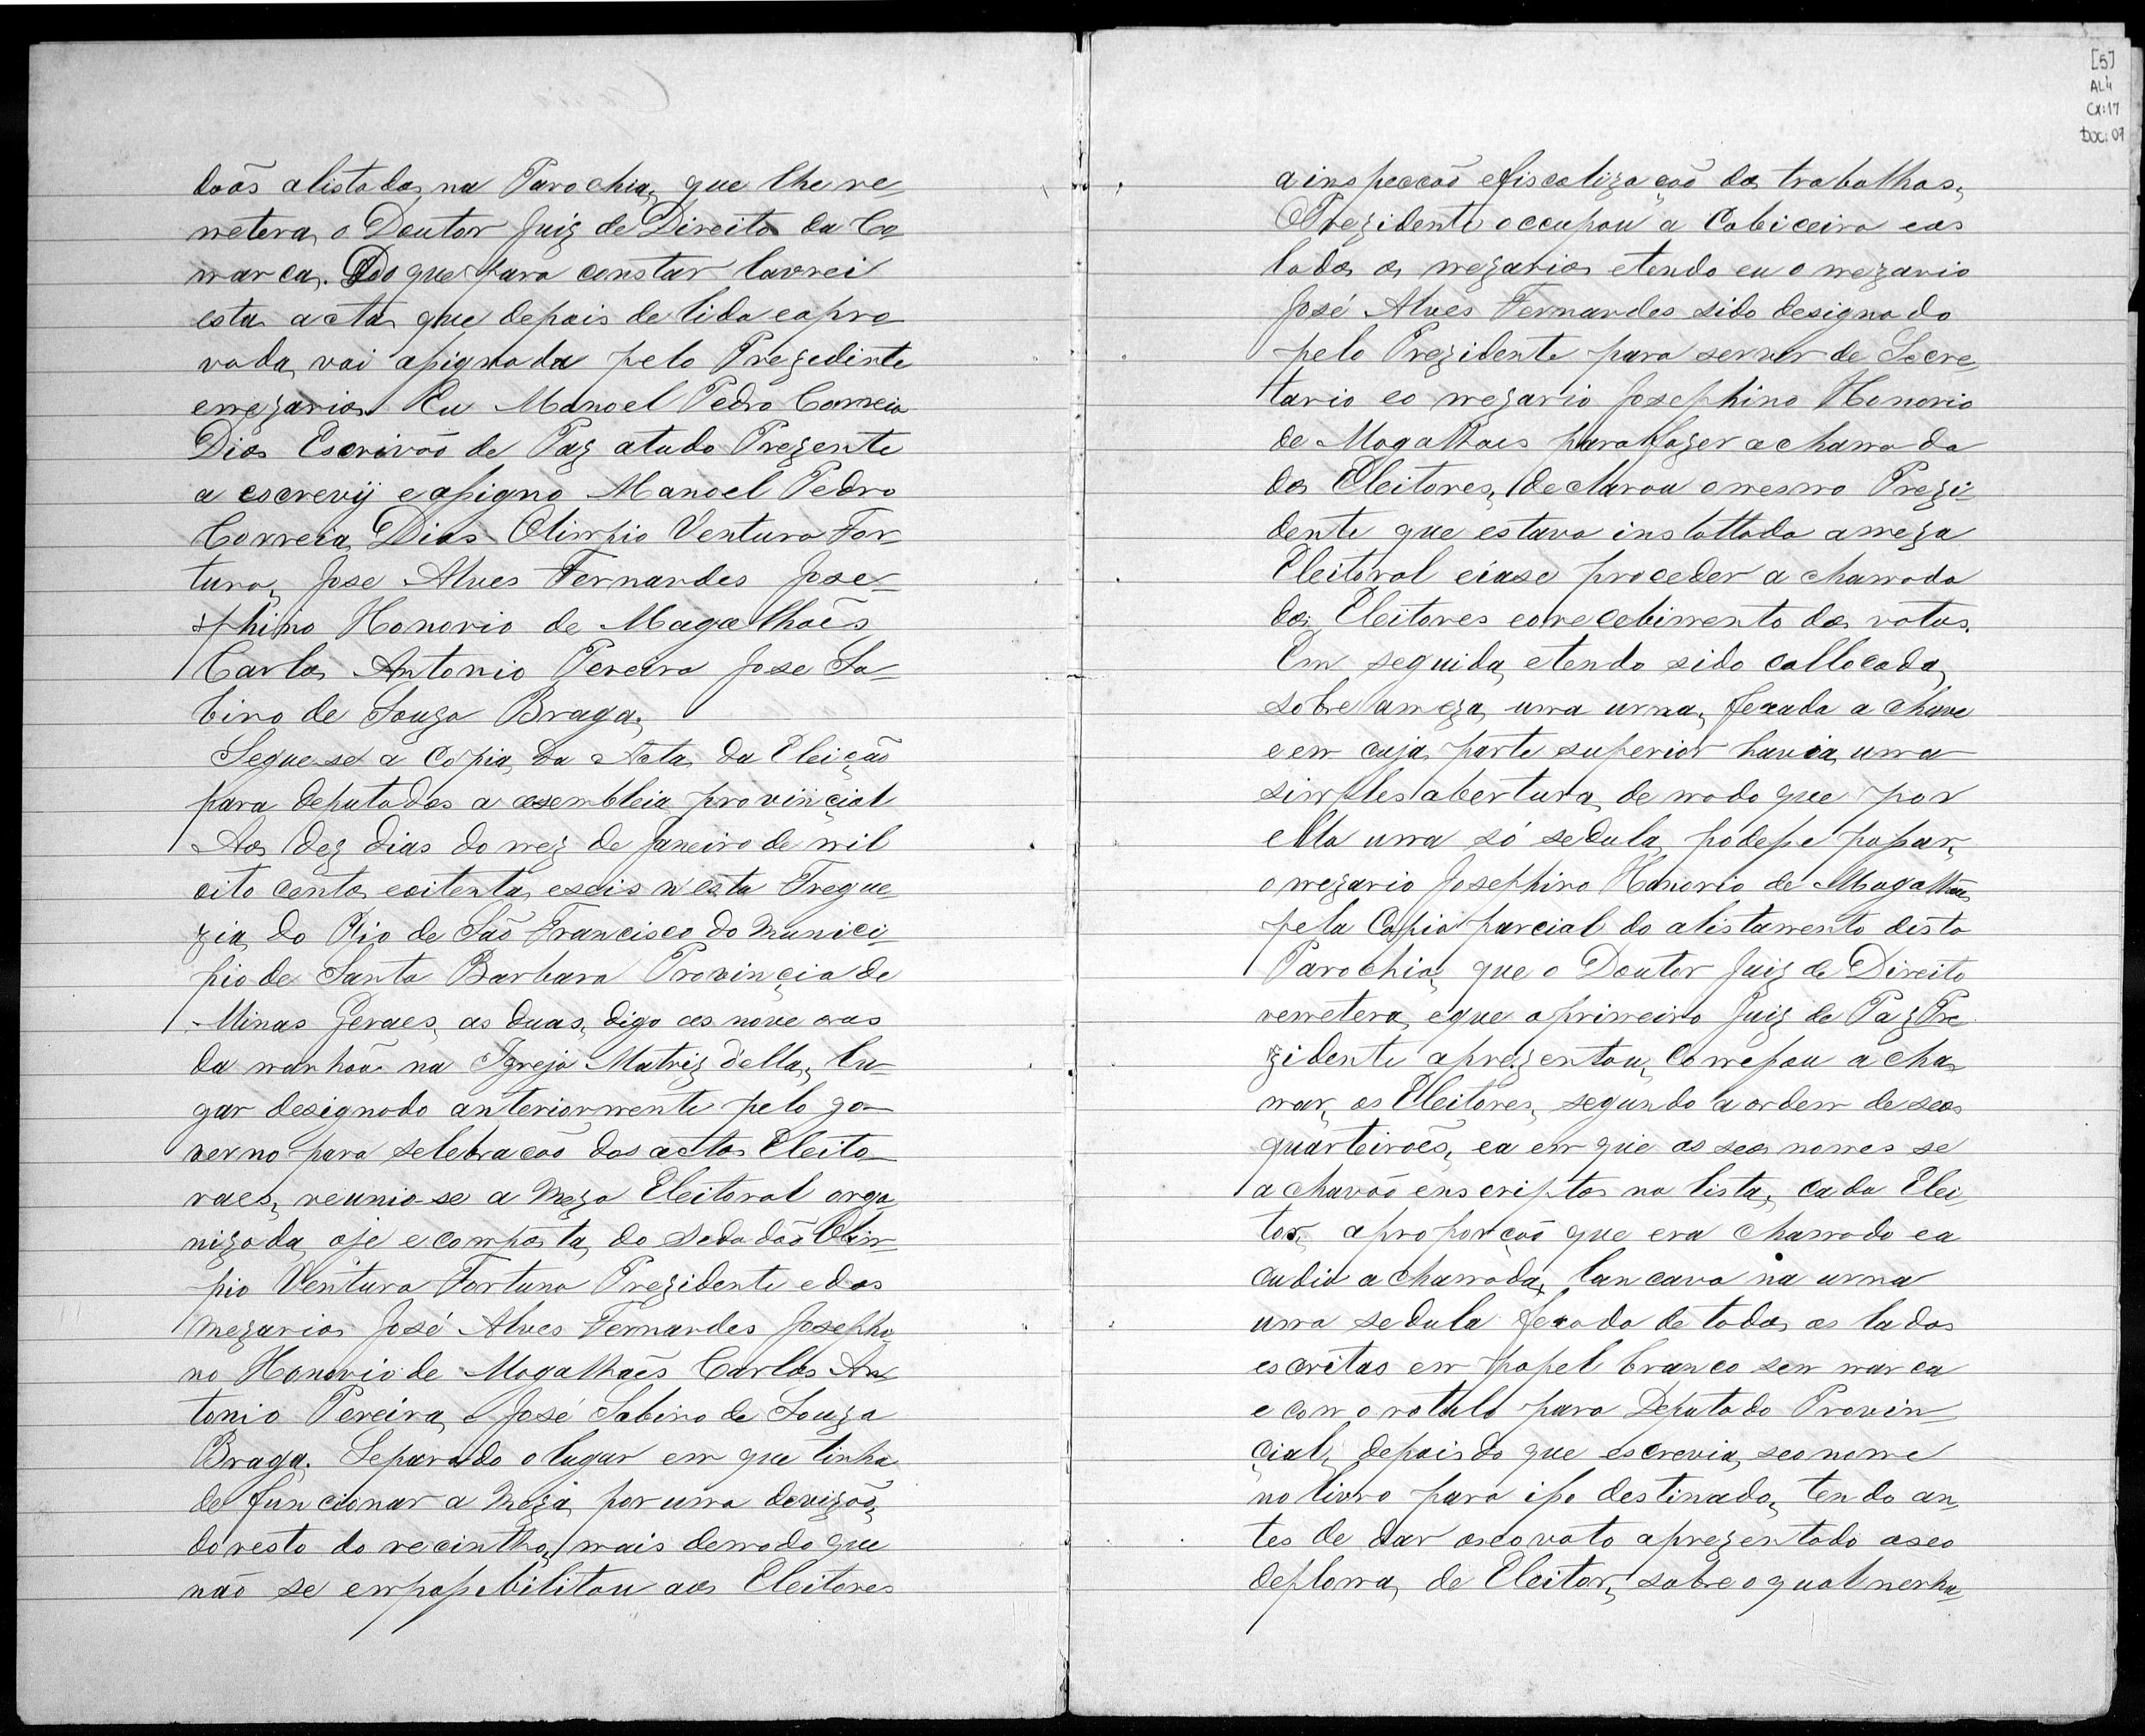 doãs alistados na Parochia, que lhe re-
metera, o Doutor Juiz de Direito da Co-
marca. Do que para constar lavrei
esta acta que depois de lida e apro-
vada, vai assignada pelo Prezedinte
e mezarios. Eu Manoel Pedro Correia
Dias Escrivão de Paz atudo Prezente
a escrevij e assigno Manoel Pedro
Correia Dias Olimpio Ventura For-
tuna, Jose Alves Fernandes Jose-
phino Honorio de Magalhaẽs
Carlos Antonio Pereira Jose Sa-
bino de Souza Braga.
Segue-se a Copia da Acta da Eleição
para deputados a assembleia provincial
Aos dez dias do mez de Janeiro de mil
oito centos e oitenta, e seis n'esta Fregue-
zia, do Rio de São Francisco do Munici-
pio de Santa Barbara Provincia de
Minas Geraes, as duas, digo as nove oras
da manhoã na Igreja Matriz d'ella, lu-
gar designado anteriormente pelo go-
verno para selebracaõ dos actos Eleito-
raes, reunio-se a Meza Eleitoral orga-
nizada, oje e composta, do Sedadaõ Olim-
pio Ventura Fortuna Prezidente e dos
Mezarios José Alves Fernandes Josephi-
no Honorio de Magalhaẽs Carlos An-
tonio Pereira, e José Sabino de Souza
Braga. Separado o lugar em que tinha
de funcionar a Meza, por uma devizaõ,
do resto do recintho, mais demodo que
naõ se empossebilitou aos Eleitores
[5]
AL4
CX:17
DOC:07
a inspeccaõ e fiscalizacaõ dos trabalhos,
O Prezidente occupou a Cabiceira e os
lados os mezarios e tendo eu o mezario
José Alves Fernandes sido designado
pelo Prezidente para servir de Secre-
tario e o mezario Josephino Honorio
de Magalhais para fazer a chamada
dos Eleitores, declarou o mesmo Prezi-
dente que estava installada a meza
Eleitoral e iase proceder a chamada
dos Eleitores e o recebimento dos votos.
Em seguida, e tendo sido collocada,
sobre a meza, uma urna, fexada a chave
e em cuja parte superior havia, uma
simples abertura, de modo que por
ella uma só sedula, podesse passar,
o mezario Josephino Honorio de Magalhães
pela Copia parcial do alistamento desta
Parochia, que o Doutor Juiz de Direito
remetera, e que o primeiro Juiz de Paz Pre-
zidente aprezentou, Comessou a cha-
mar, os Eleitores, segundo a ordem de seos
quarteiroẽs, e a em que os seos nomes se
achavaõ enscriptos na lista, cada Elei-
tor, a proporçaõ que era chamado e a
cudia a chamada, lancava na urna
uma sedula fexada de todos os lados
escritas em papel branco sem marca
e com o rotulo para Deputado Provin-
cial, depois do que escrevia, seo nome
no livro para isso destinado, tendo an-
tes de dar o seo voto aprezentado o seo
deploma, de Eleitor, sobre o qual nenhu-